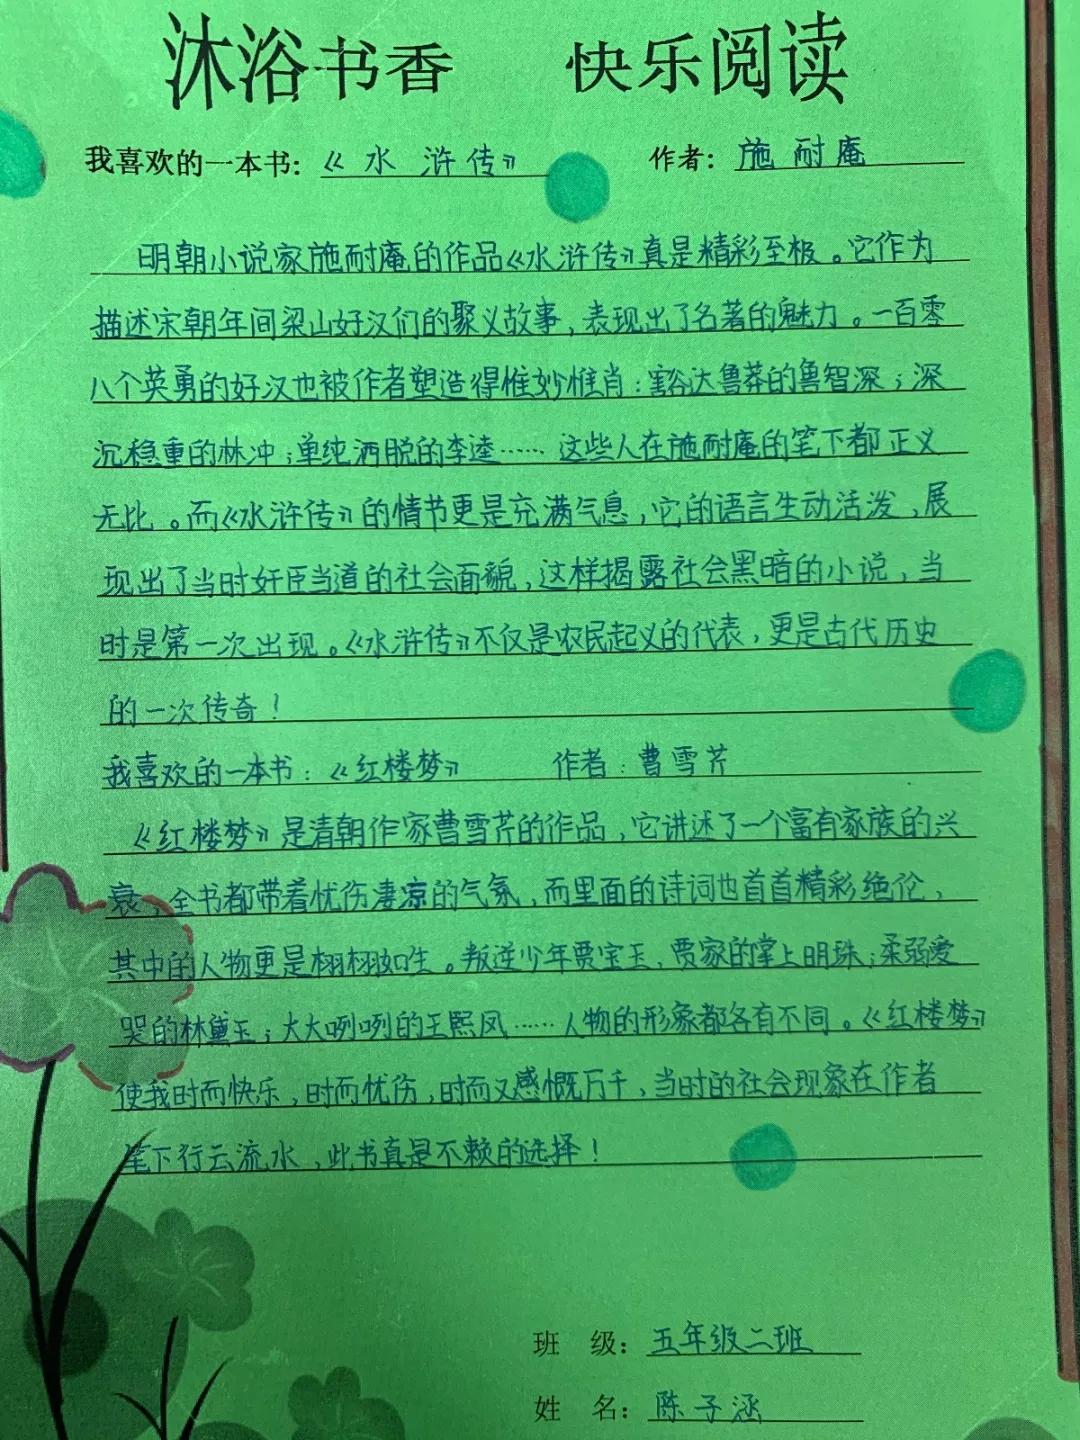 沐浴书香 快乐阅读
我喜欢的一本书：《水浒传》 作者：施耐庵
明朝小说家施耐庵的作品《水浒传》真是精彩至极。它作为
描述宋朝年间梁山好汉们的聚义故事，表现出了名著的魅力。一百零
八个英勇的好汉也被作者塑造得惟妙惟肖：豁达鲁莽的鲁智深；深
沉稳重的林冲；单纯洒脱的李逵……这些人在施耐庵的笔下都正义
无比。而《水浒传》的情节更是充满气息，它的语言生动活泼，展
现出了当时奸臣当道的社会面貌，这样揭露社会黑暗的小说，当
时是第一次出现。《水浒传》不仅是农民起义的代表，更是古代历史
的一次传奇！
我喜欢的一本书：《红楼梦》 作者：曹雪芹
《红楼梦》是清朝作家曹雪芹的作品，它讲述了一个富有家族的兴
衰，全书都带着忧伤凄凉的气氛，而里面的诗词也首首精彩绝伦，
其中的人物更是栩栩如生。叛逆少年贾宝玉，贾家的掌上明珠；柔弱爱
哭的林黛玉；大大咧咧的王熙凤……人物的形象都各有不同。《红楼梦》
使我时而快乐，时而忧伤，时而又感慨万千，当时的社会现象在作者
笔下行云流水，此书真是不赖的选择！
班 级：五年级二班
姓 名：陈子涵